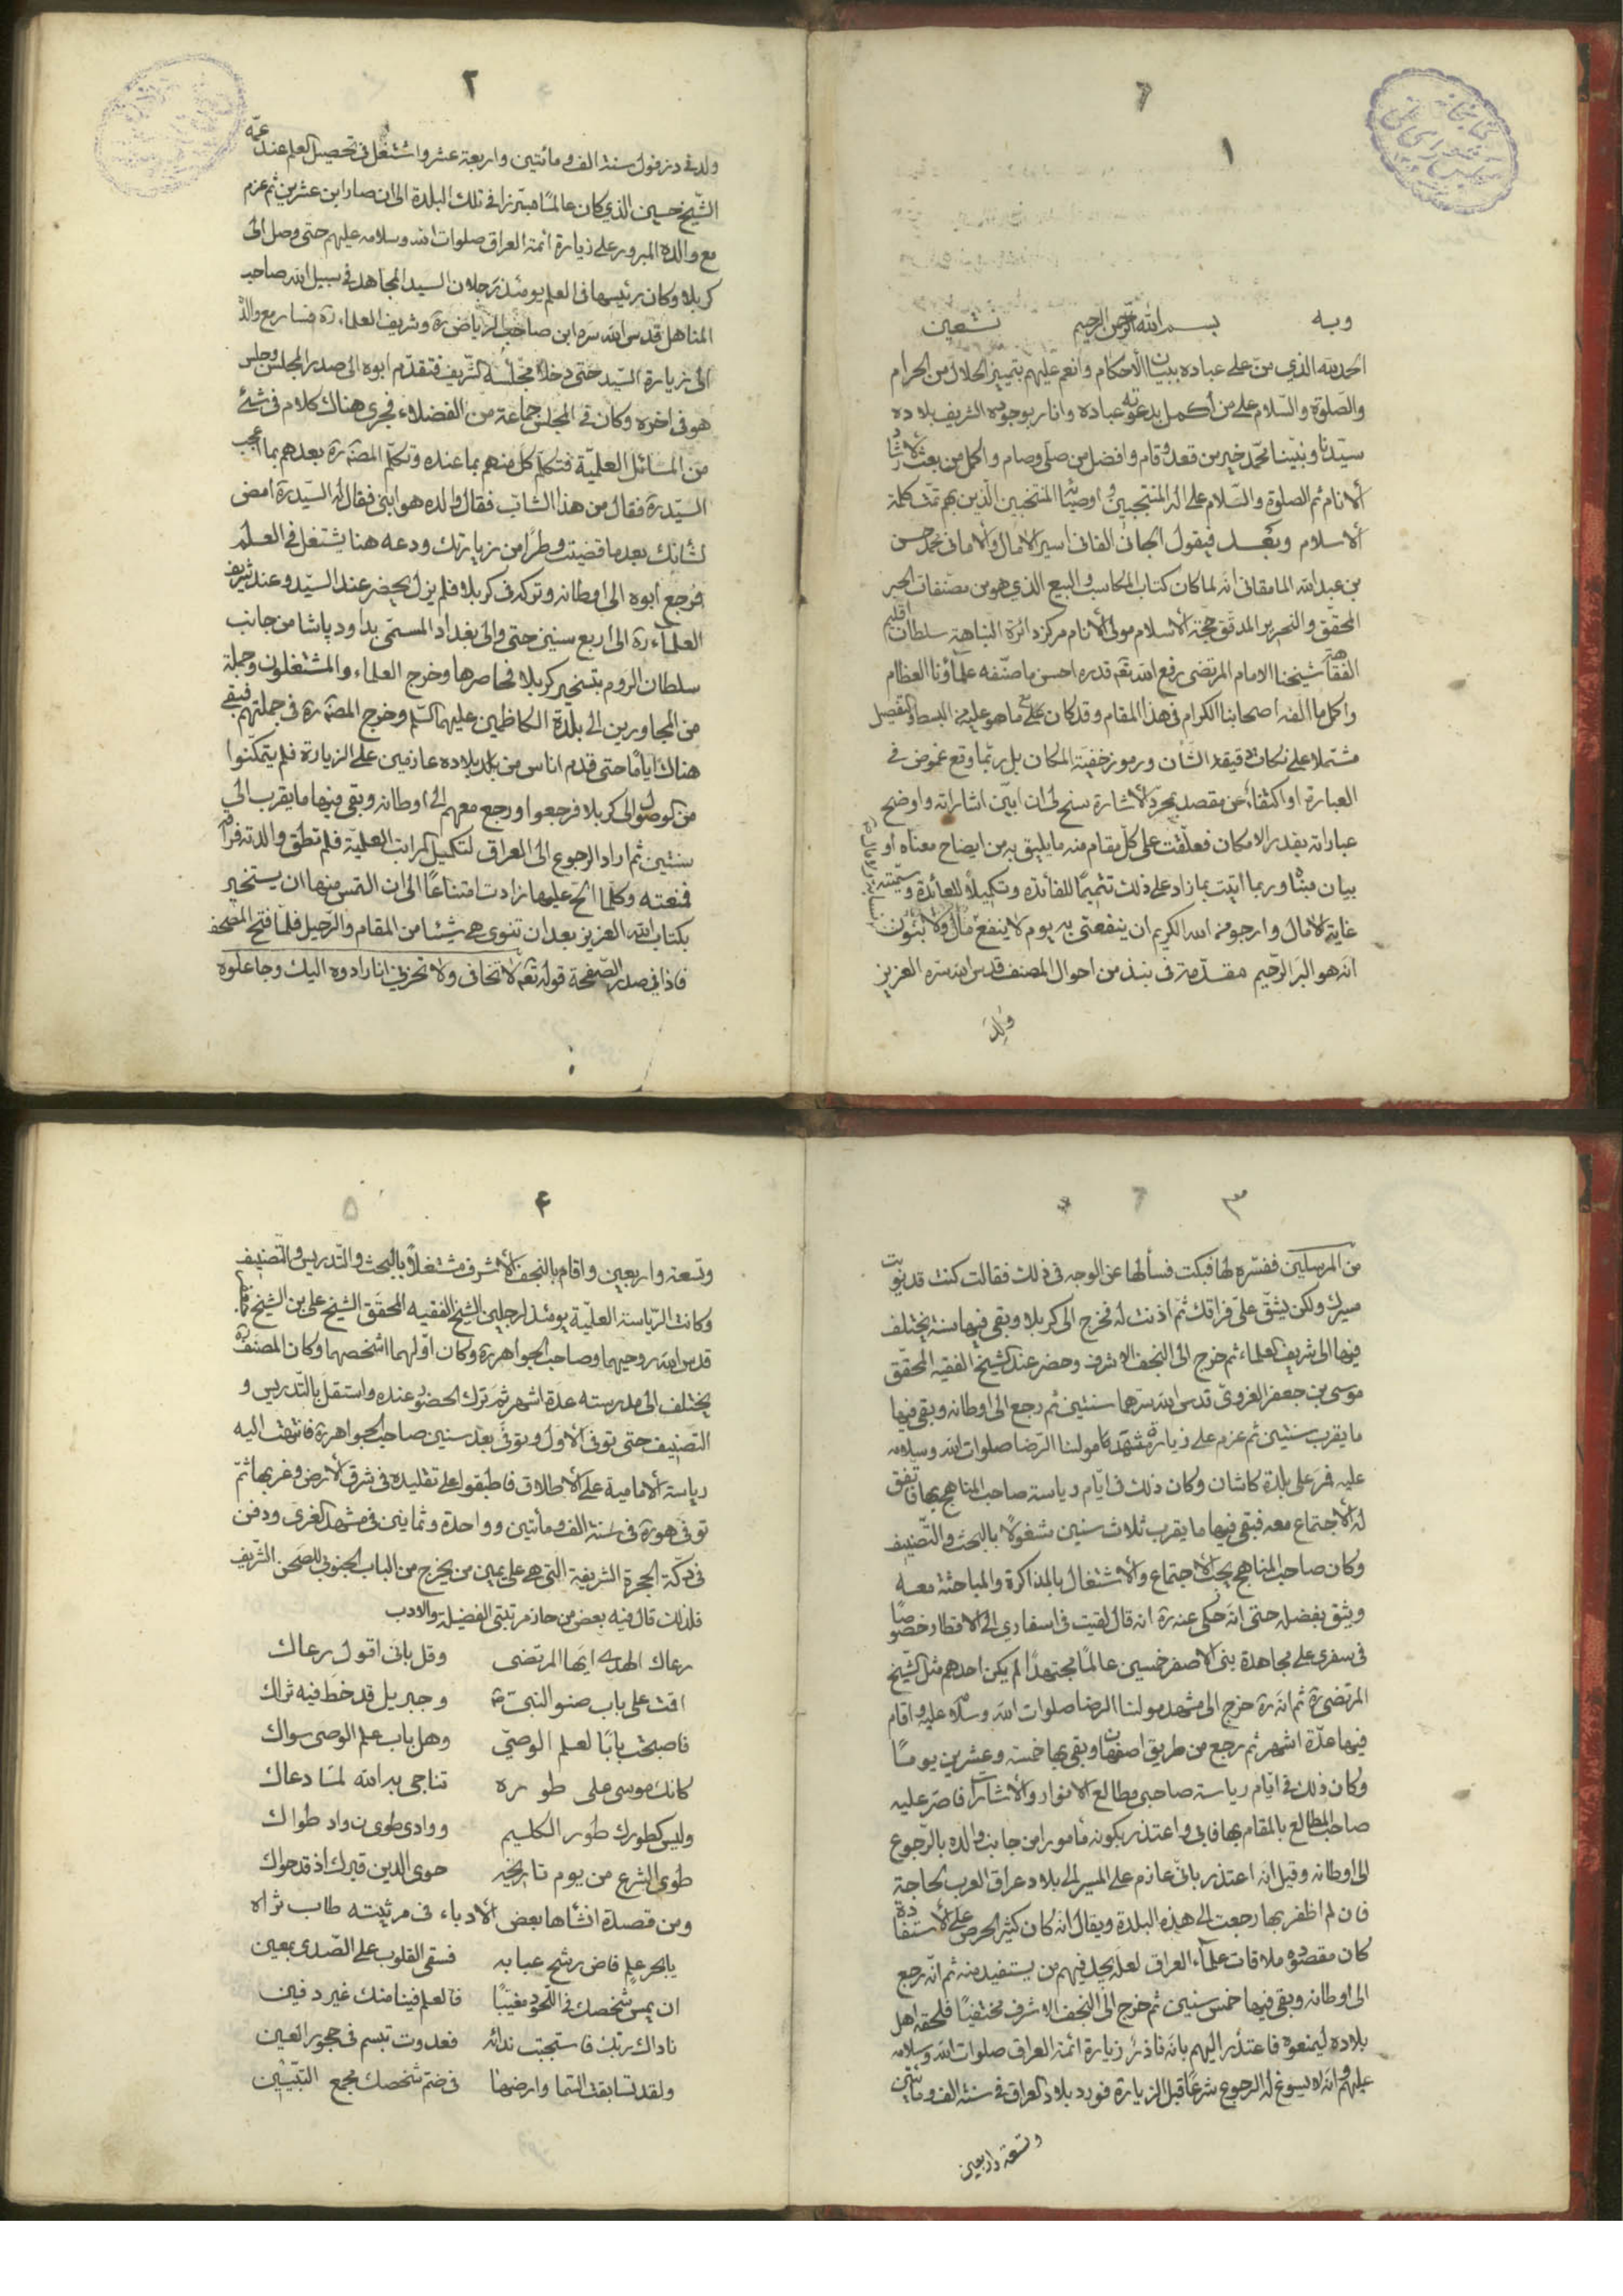 ١
وبه بسم الله الرحمن الرحيم نستعين
الحمد لله الذي منّ على عباده ببيان الأحكام وانعم عليهم بتمييز الحلال من الحرام
والصّلوة والسّلام على من أكمل بدعوته عباده وانار بوجوده الشريف بلاده
سيّدنا ونبيّنا محمّد خير من قعد وقام وافضل من صلّى وصام واكمل من بعث لارشاد
ألأنام ثم الصلوة والسّلام على اله المنتجبين واوصيائه المنتخبين الّذين بهم تمّت كلمة
ألاسلام وبعد فيقول الجاني الفاني اسير الامال والأماني محمد حسن
بن عبد الله المامقاني انه لما كان كتاب المكاسب والبيع الذي هو من مصنفات الحبر
المحقق والنحرير المدقق حجّة ألاسلام مولى ألأنام مركز دائرة النباهة سلطان اقليم
الفقاهة شيخنا الامام المرتضى رفع الله تعه قدره احسن ما صنّفه علماؤنا العظام
واكمل ما الفه اصحابنا الكرام في هذا المقام وقد كان على ما هو عليه من البسط والتفصيل
مشتملا على نكات دقيقة الشان ورموز خفيّة المكان بل ربّما وقع غموض في
العبارة او اكتفاء عن مقصد بمجرّد ألاشارة سنح لي ان ابيّن اشاراته واوضح
عباراته بقدر الامكان فعلّقت على كلّ مقام منه ما يليق به من ايضاح معناه أو
بيان مبناه وربما اتيت بما زاد على ذلك تتميمًا للفائدة وتكميلاً للعائدة وسمّيته
غاية الامال وارجو من الله الكريم ان ينفعني به يوم لا ينفع مال ولا بنون
انه هو البرّ الرّحيم مقدّمة في نبذ من احوال المصنف قدس الله سره العزيز
وُلِدَ
٢
ولد في دزفول سنة الف ومائتين واربعة عشر واشتغل في تحصيل العلم عند عمّه
الشّيخ حسين الذي كان عالمًا مبترزا في تلك البلدة الى ان صار ابن عشرين ثم عزم
مع والده المبرور على زيارة ائمة العراق صلوات الله وسلامه عليهم حتى وصل الى
كربلا وكان رئيسها في العلم يومئذ رجلان السيد المجاهد في سبيل الله صاحب
المناهل قدس الله سره ابن صاحب الرياض ره وشريف العلماء ره فسار مع والده
الى زيارة السيّد حتى دخلا مجلسه الشريف فتقدّم ابوه الى صدر المجلس وجلس
هو في اخره وكان في المجلس جماعة من الفضلاء فجرى هناك كلام في شئ
من المسائل العلميّة فتكلّم كل منهم بما عنده وتكلّم المصنّف ره بعدهم بما اعجب
السيّد ره فقال من هذا الشاب فقال والده هو ابني فقال له السيّد ره امض
لشانك بعد ما قضيت وطرًا من زيارتك ودعه هنا يشتغل في العلم
فرجع أبوه الى اوطانه وتركه في كربلا فلم يزل يحضر عند السيّد وعند شريف
العلماء ره الى اربع سنين حتى والي بغداد المسمّى بداود پاشا من جانب
سلطان الروم بتسخير كربلا فحاصرها وخرج العلماء والمشتغلون وجملة
من المجاورين الى بلدة الكاظمين عليهما السّلم وخرج المصنّف ره في جملتهم فبقى
هناك ايامًا حتى قدم اناس من بلاده عازمين على الزيارة فلم يتمكّنوا
من الوصول الى كربلا فرجعوا ورجع معهم الى اوطانه وبقى فيها ما يقرب الى
سنتين ثم اراد الرجوع الى العراق لتكميل المراتب العلميّة فلم تطق والدته فراقه
فمنعته وكلّما الحّ عليها زادت امتناعًا الى ان التمس منها ان يستخير
بكتاب الله العزيز بعد ان تنوى هي شيئا من المقام والرّحيل فلمّا فتح المصحف
فاذا في صدر الصّفحة قوله تعه لا تخافى ولا تحزنى انا رادوه اليك وجاعلوه
٣
من المرسلين ففسّره لها فبكت فسألها عن الوجه في ذلك فقالت كنت قد نويت
مسيرك ولكن يشقّ علىّ فراقك ثم اذنت له فخرج الى كربلا وبقى فيها سنة يختلف
فيها الى شريف العلماء ثم خرج الى النجف الاشرف وحضر عند الشيخ الفقيه المحقّق
موسى بن جعفر الغروىّ قدس الله سرهما سنتين ثم رجع الى اوطانه وبقى فيها
ما يقرب سنتين ثم عزم على زيارة مشهد مولنا الرّضا صلوات الله وسلامه
عليه فمرّ على بلدة كاشان وكان ذلك في ايّام رياسة صاحب المناهج بها فاتفق
له ألاجتماع معه فبقى فيها ما يقرب ثلاث سنين مشغولا بالبحث والتّصنيف
وكان صاحب المناهج يحبّ الاجتماع والاشتغال بالمذاكرة والمباحثة معه
ويثق بفضله حتى انه حكى عنه ره انه قال لقيت في اسفاري الى الاقطار خصوصًا
في سفري على مجاهدة بني الاصفر خمسين عالمًا مجتهدًا لم يكن احدهم مثل الشّيخ
المرتضى ره ثم انه ره خرج الى مشهد مولنا الرضا صلوات الله وسلامه عليه واقام
فيها عدّة اشهر ثم رجع من طريق اصفهان وبقى بها خمسة وعشرين يومًا
وكان ذلك في ايّام رياسة صاحبى مطالع الانوار والأشارات فاصرّ عليه
صاحب المطالع بالمقام بها فابى واعتذر بكونه مأمورا من جانب والده بالرّجوع
الى اوطانه وقيل انه اعتذر بانّى عازم على المسير الى بلاد عراق العرب لحاجة
فان لم اظفر بها رجعت الى هذه البلدة ويقال انه كان كثير الحرص على الاستفادة
كان مقصوده ملاقات علماء العراق لعله يجد فيهم من يستفيد منه ثم انّه رجع
الى اوطانه وبقى فيها خمس سنين ثم خرج الى النجف الاشرف مختفيًا فلحقه اهل
بلاده ليمنعوه فاعتذر اليهم بانه ناذر زيارة ائمة العراق صلوات الله وسلامه
عليهم وانه لا يسوغ له الرجوع شرعًا قبل الزيارة فورد بلاد العراق في سنة الف ومائتين
وتسعة واربعين
٤
وتسعة واربعين واقام بالنجف ألاشرف مشتغلاً بالبحث والتّدريس والتّصنيف
وكانت الرّياسة العلميّة يومئذ لرجلين الشيخ الفقيه المحقّق الشيخ على بن الشيخ جعفر
قدس الله روحيهما وصاحب الجواهر ره وكان اوّلهما اشخصهما وكان المصنف ره
يختلف الى مدرسته عدة اشهر ثم ترك الحضور عنده واستقلّ بالتّدريس و
التصنيف حتى توفى ألاول وتوفّى بعد سنين صاحب الجواهر ره فانتهت اليه
رياسة ألأمامية على ألأطلاق فاطبقوا على تقليده في شرق الأرض وغربها ثمّ
توفى هو ره في سنة الف ومأتين وواحدة وثمانين في مشهد الغرى ودفن
في دكّة الحجرة الشريفة التي هي على يمين من يخرج من الباب الجنوبى للصّحن الشّريف
فلذلك قال فيه بعض من حاز مرتبتى الفضيلة والادب
رعاك الهدى ايّها المرتضى وقل بانى اقول رعاك
اقمت على باب صنو النبىّ وجبريل قد خط فيه ثراك
فاصبحت بابًا لعلم الوصىّ وهل باب علم الوصى سواك
كانك موسى على طوره تناجى به الله لمّا دعاك
وليس كطورك طور الكليم ووادى طوى ن واد طواك
طوى الشرع من يوم تاريخه حوى الدين قبرك اذ قد حواك
ومن قصيدة انشأها بعض الأدباء في مرثيته طاب ثراه
يا بحر علم فاض رشح عبابه فسقى القلوب على الصّدى بمعين
ان يمس شخصك في اللّحود مغيّبًا فالعلم فينا منك غير دفين
ناداك ربّك فاستجبت ندائه فغدوت تبسم في حجور العين
ولقد تسابقت السّما وارضها في ضمّ شخصك مجمع النّبيّين